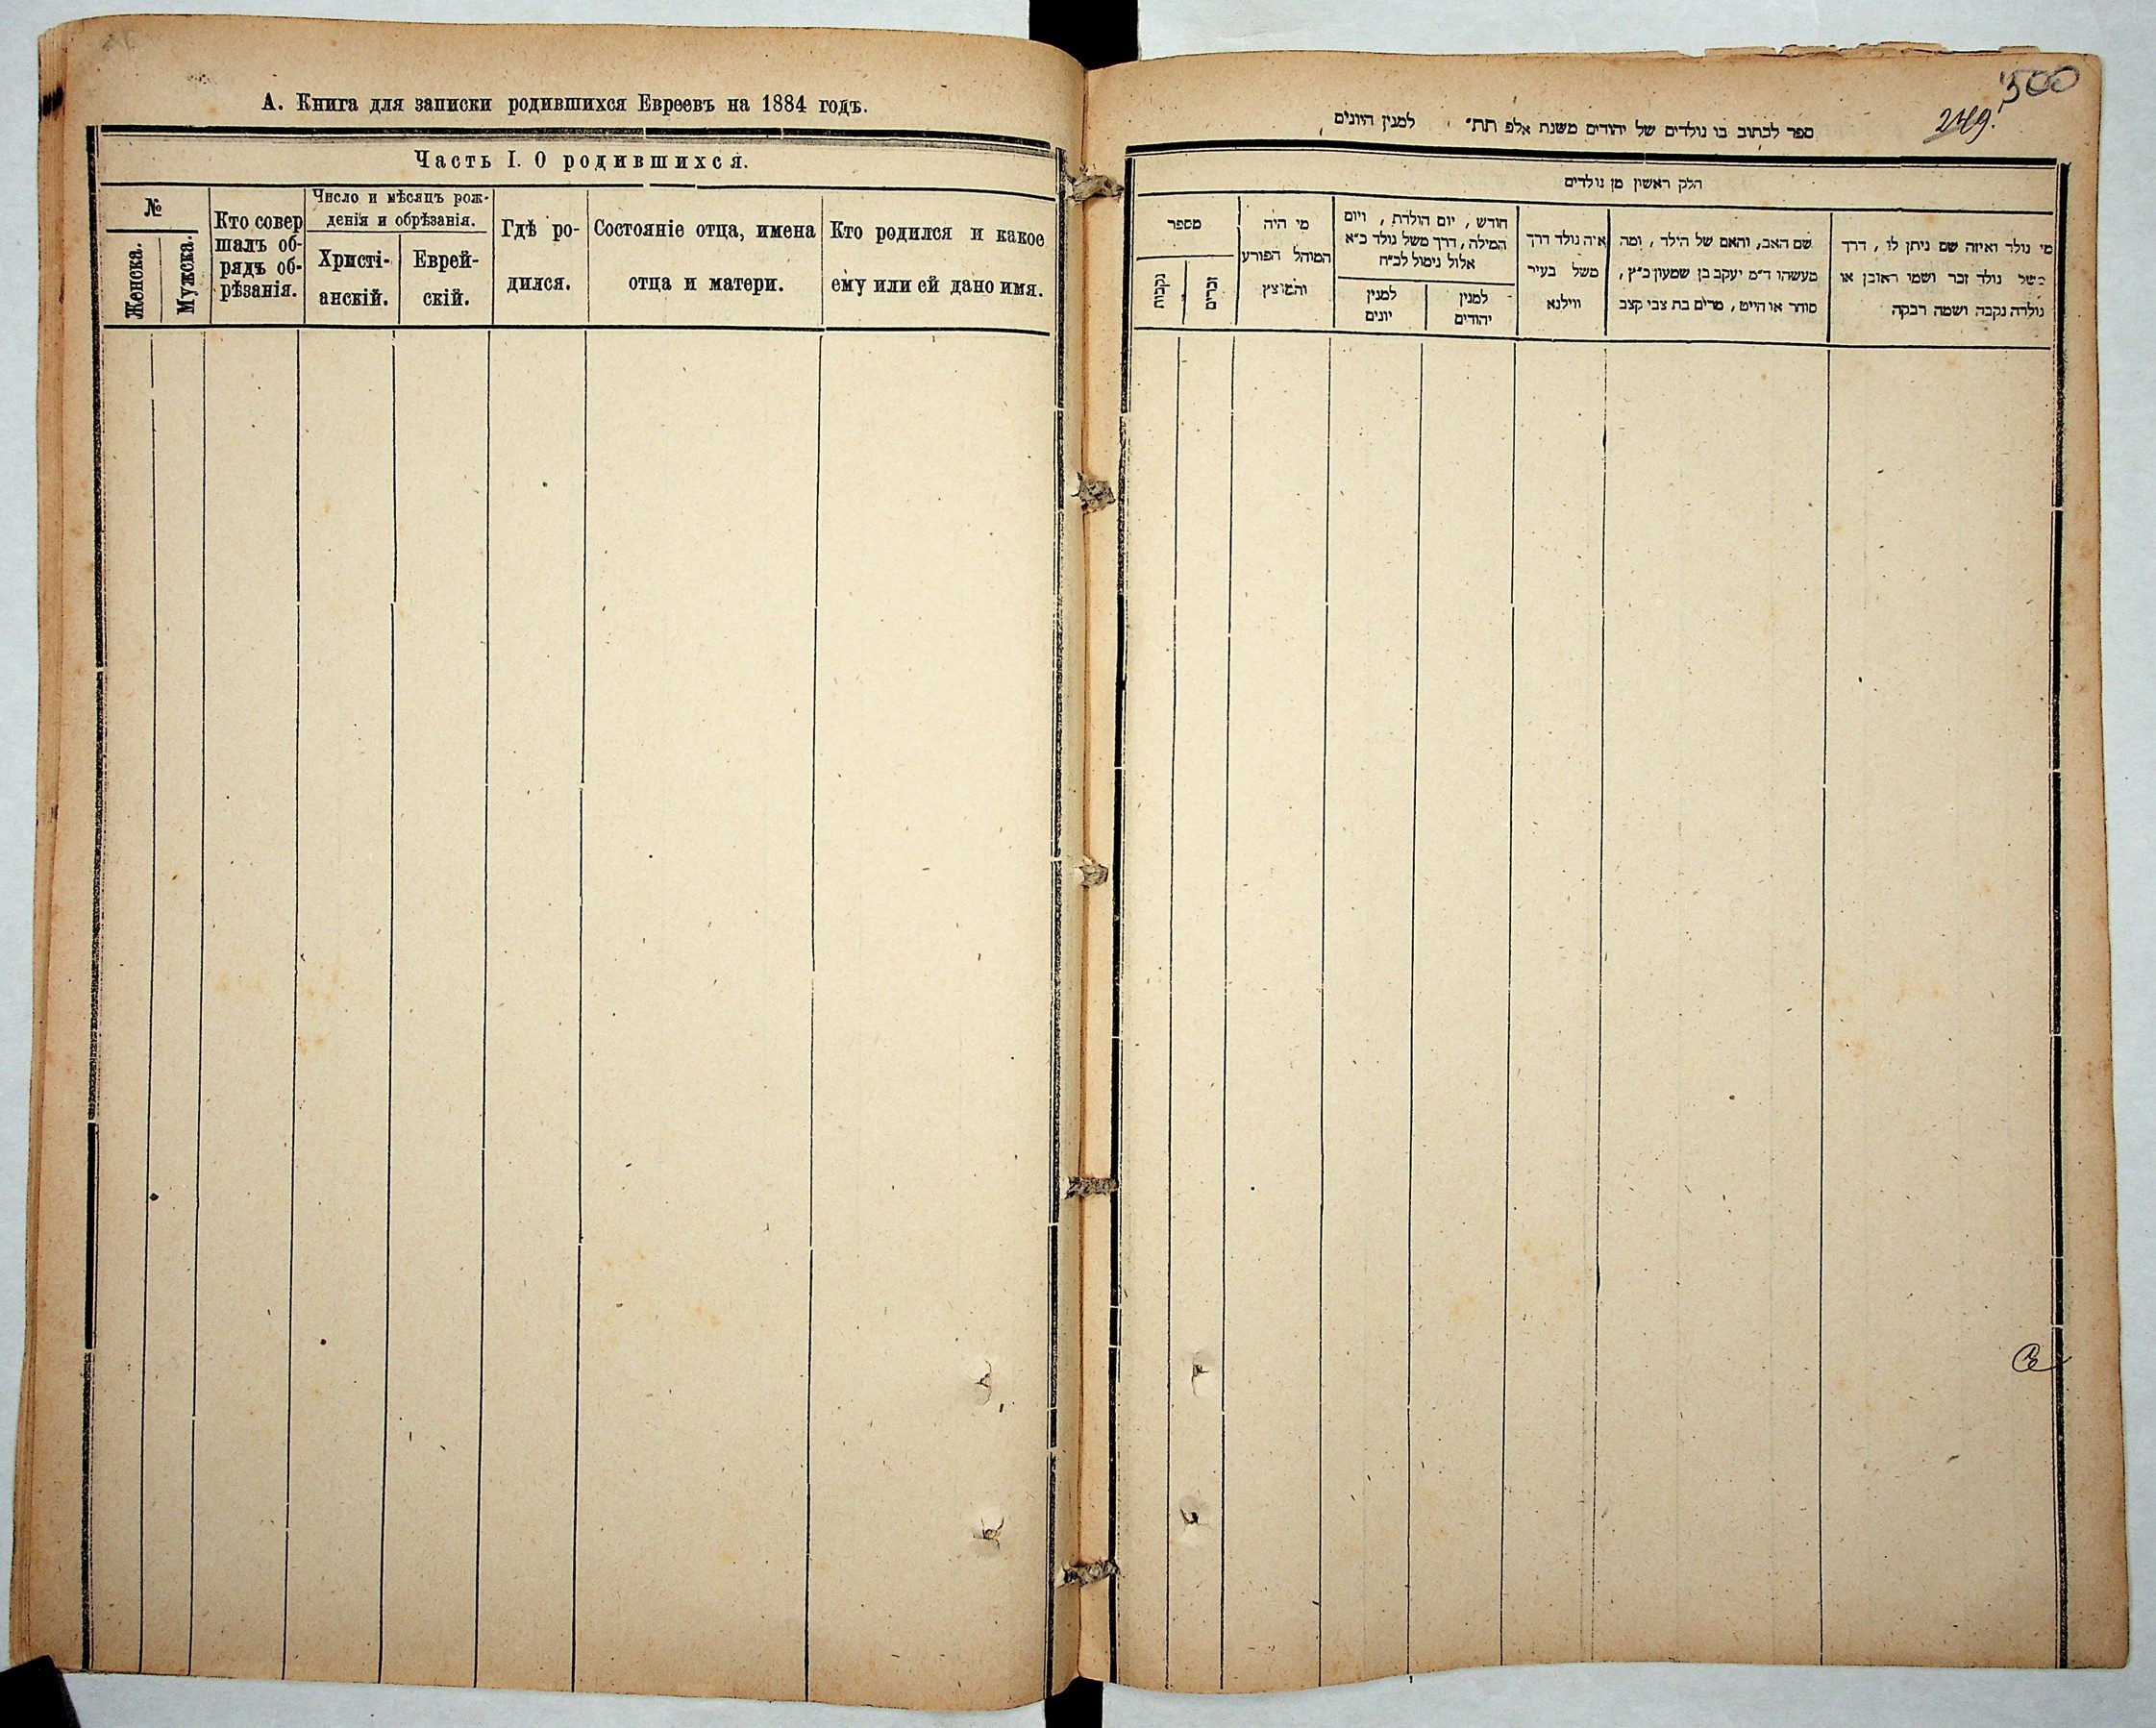 А. Книга для записки родившихся Евреевъ на 1884 годъ.
Часть I. О родившихся.
№
Женска.
Мужска.
Кто совер
шалъ об-
рядъ об-
рѣзанія.
Число и мѣсяцъ рож-
денія и обрѣзанія.
Христі-
анскій.
Еврей-
скій.
Гдѣ ро-
дился.
Состояніе отца, имена
отца и матери.
Кто родился и какое
ему или ей дано имя.
500
249.
ספר לכתוב בו נולדים של יהודים משנת אלפ תת״ למנין היונים
חלק ראשון מן נולדים
מי נולד ואיזה שם ניתן לו, דרך
משל נולד זכר ושמו ראובן או
נולדה נקבה ושמה רבקה
שם האב, והאם של הילד, ומה
מעשהו ד״מ יעקב בן שמעון כ״ץ,
סוחר או חייט, מרים בת צבי קצב
איה נולד דרך
משל בעיר
ווילנא
חודש, יום הולדת, ויום
המילה, דרך משל נולד כ״א
אלול נימול לכ״ח
למנין
יהודים
למנין
יונים
מי היה
המוהל הפורע
והמוצץ
מספר
זכרים
נקבות